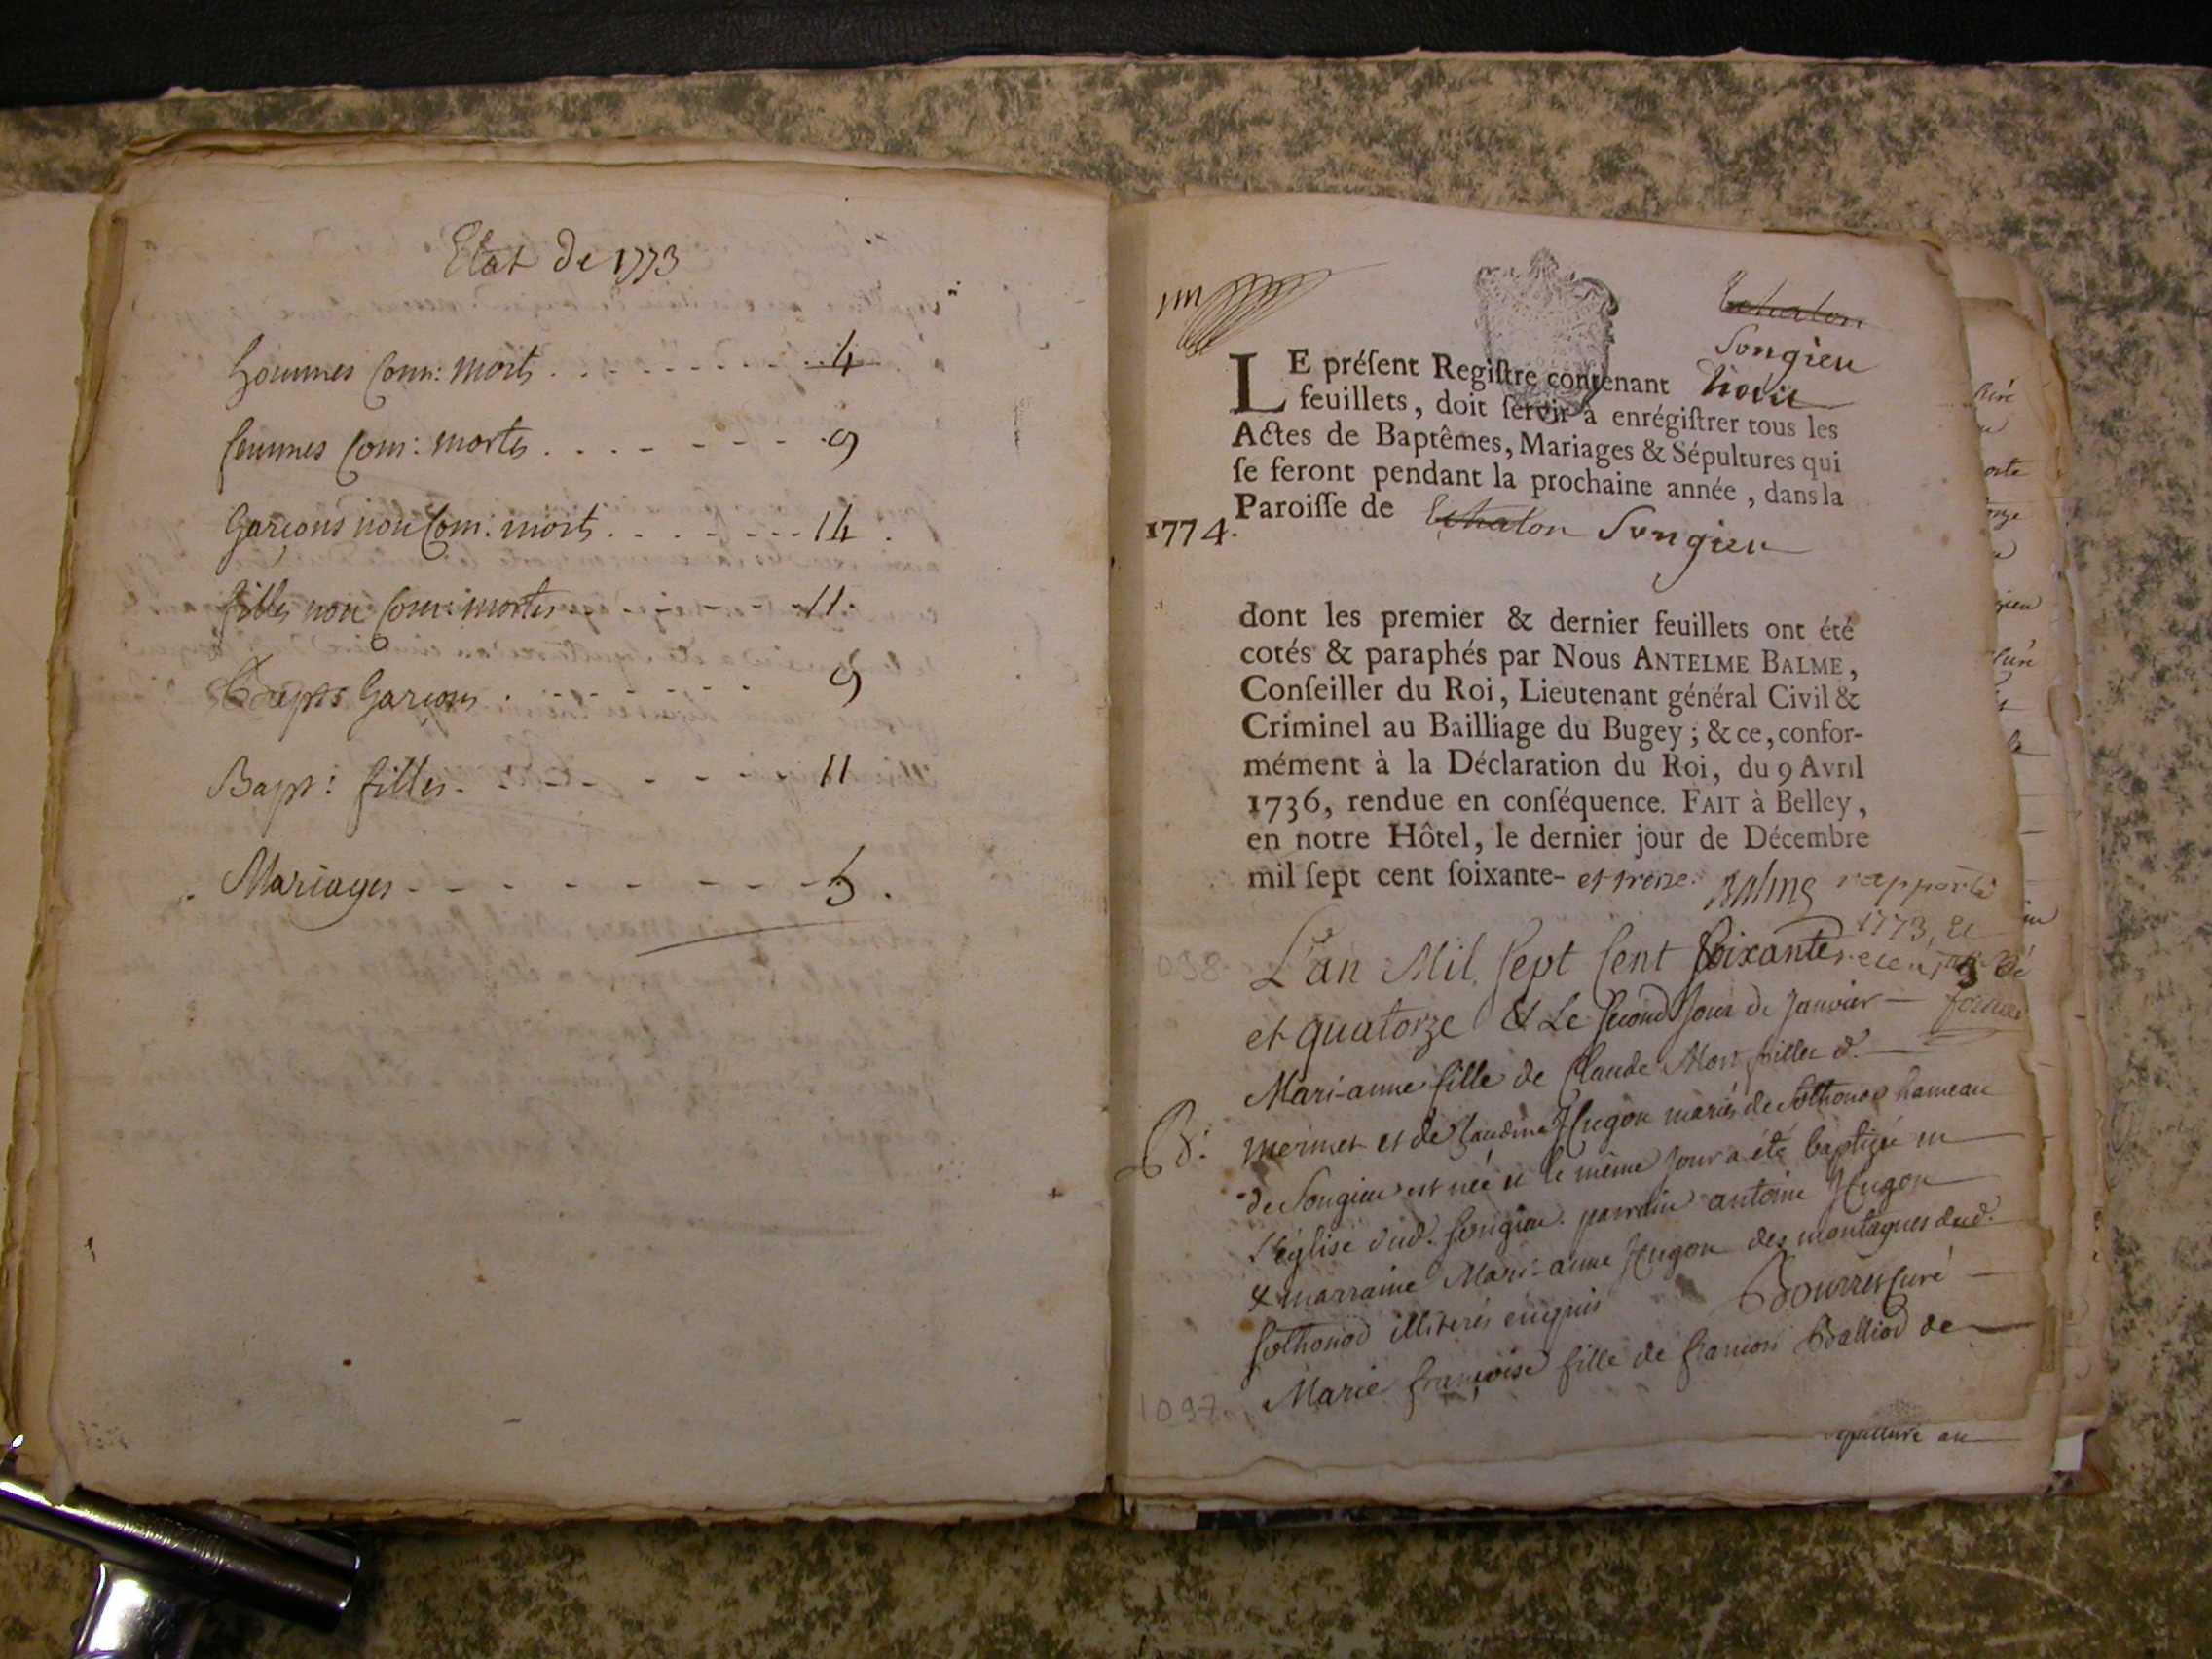 Etat de 1773
hommes Com: morts . . . . . . . . . . 4
femmes Com: mortes . . . - - - - . 9
Garçons non Com: morts . . . . - - - 14 .
filles non Com: mortes . . - - - - - 11 .
Garçons . - - - - - - 9
Bapt: filles - - - - - - - - 11
Mariages - - - - - - - - - 5 .
Echalon
Songieu
LE préſent Regiſtre contenant
feuillets, doit ſervir à enrégiſtrer tous les
Actes de Baptêmes, Mariages & Sépultures qui
ſe feront pendant la prochaine année, dans la
Paroiſſe de Echalon Songieu
1774.
dont les premier & dernier feuillets ont été
cotés & paraphés par Nous ANTELME BALME,
Conſeiller du Roi, Lieutenant général Civil &
Criminel au Bailliage du Bugey; & ce, confor-
mément à la Déclaration du Roi, du 9 Avril
1736, rendue en conſéquence. FAIT à Belley,
en notre Hôtel, le dernier jour de Décembre
mil ſept cent ſoixante- et treize. Balme rapporté
1773, et
L'an Mil Sept Cent Soixante
et quatorze & Le Second Jour de Janvier —
Mari-anne fille de Claude Monpiller d. —
B: mermet et de Claudine Hugon mariés de Sothonod hameau
de Songieu est née et le même Jour a été baptizée en —
l'église dud. Songieu. parrain antoine Hugon
& marraine Mari-anne Hugon des montagnes dud.
Sothonod illiterés enquis Bourret Curé —
1097. Marie françoise fille de françois Balliod de —
sepulture au —